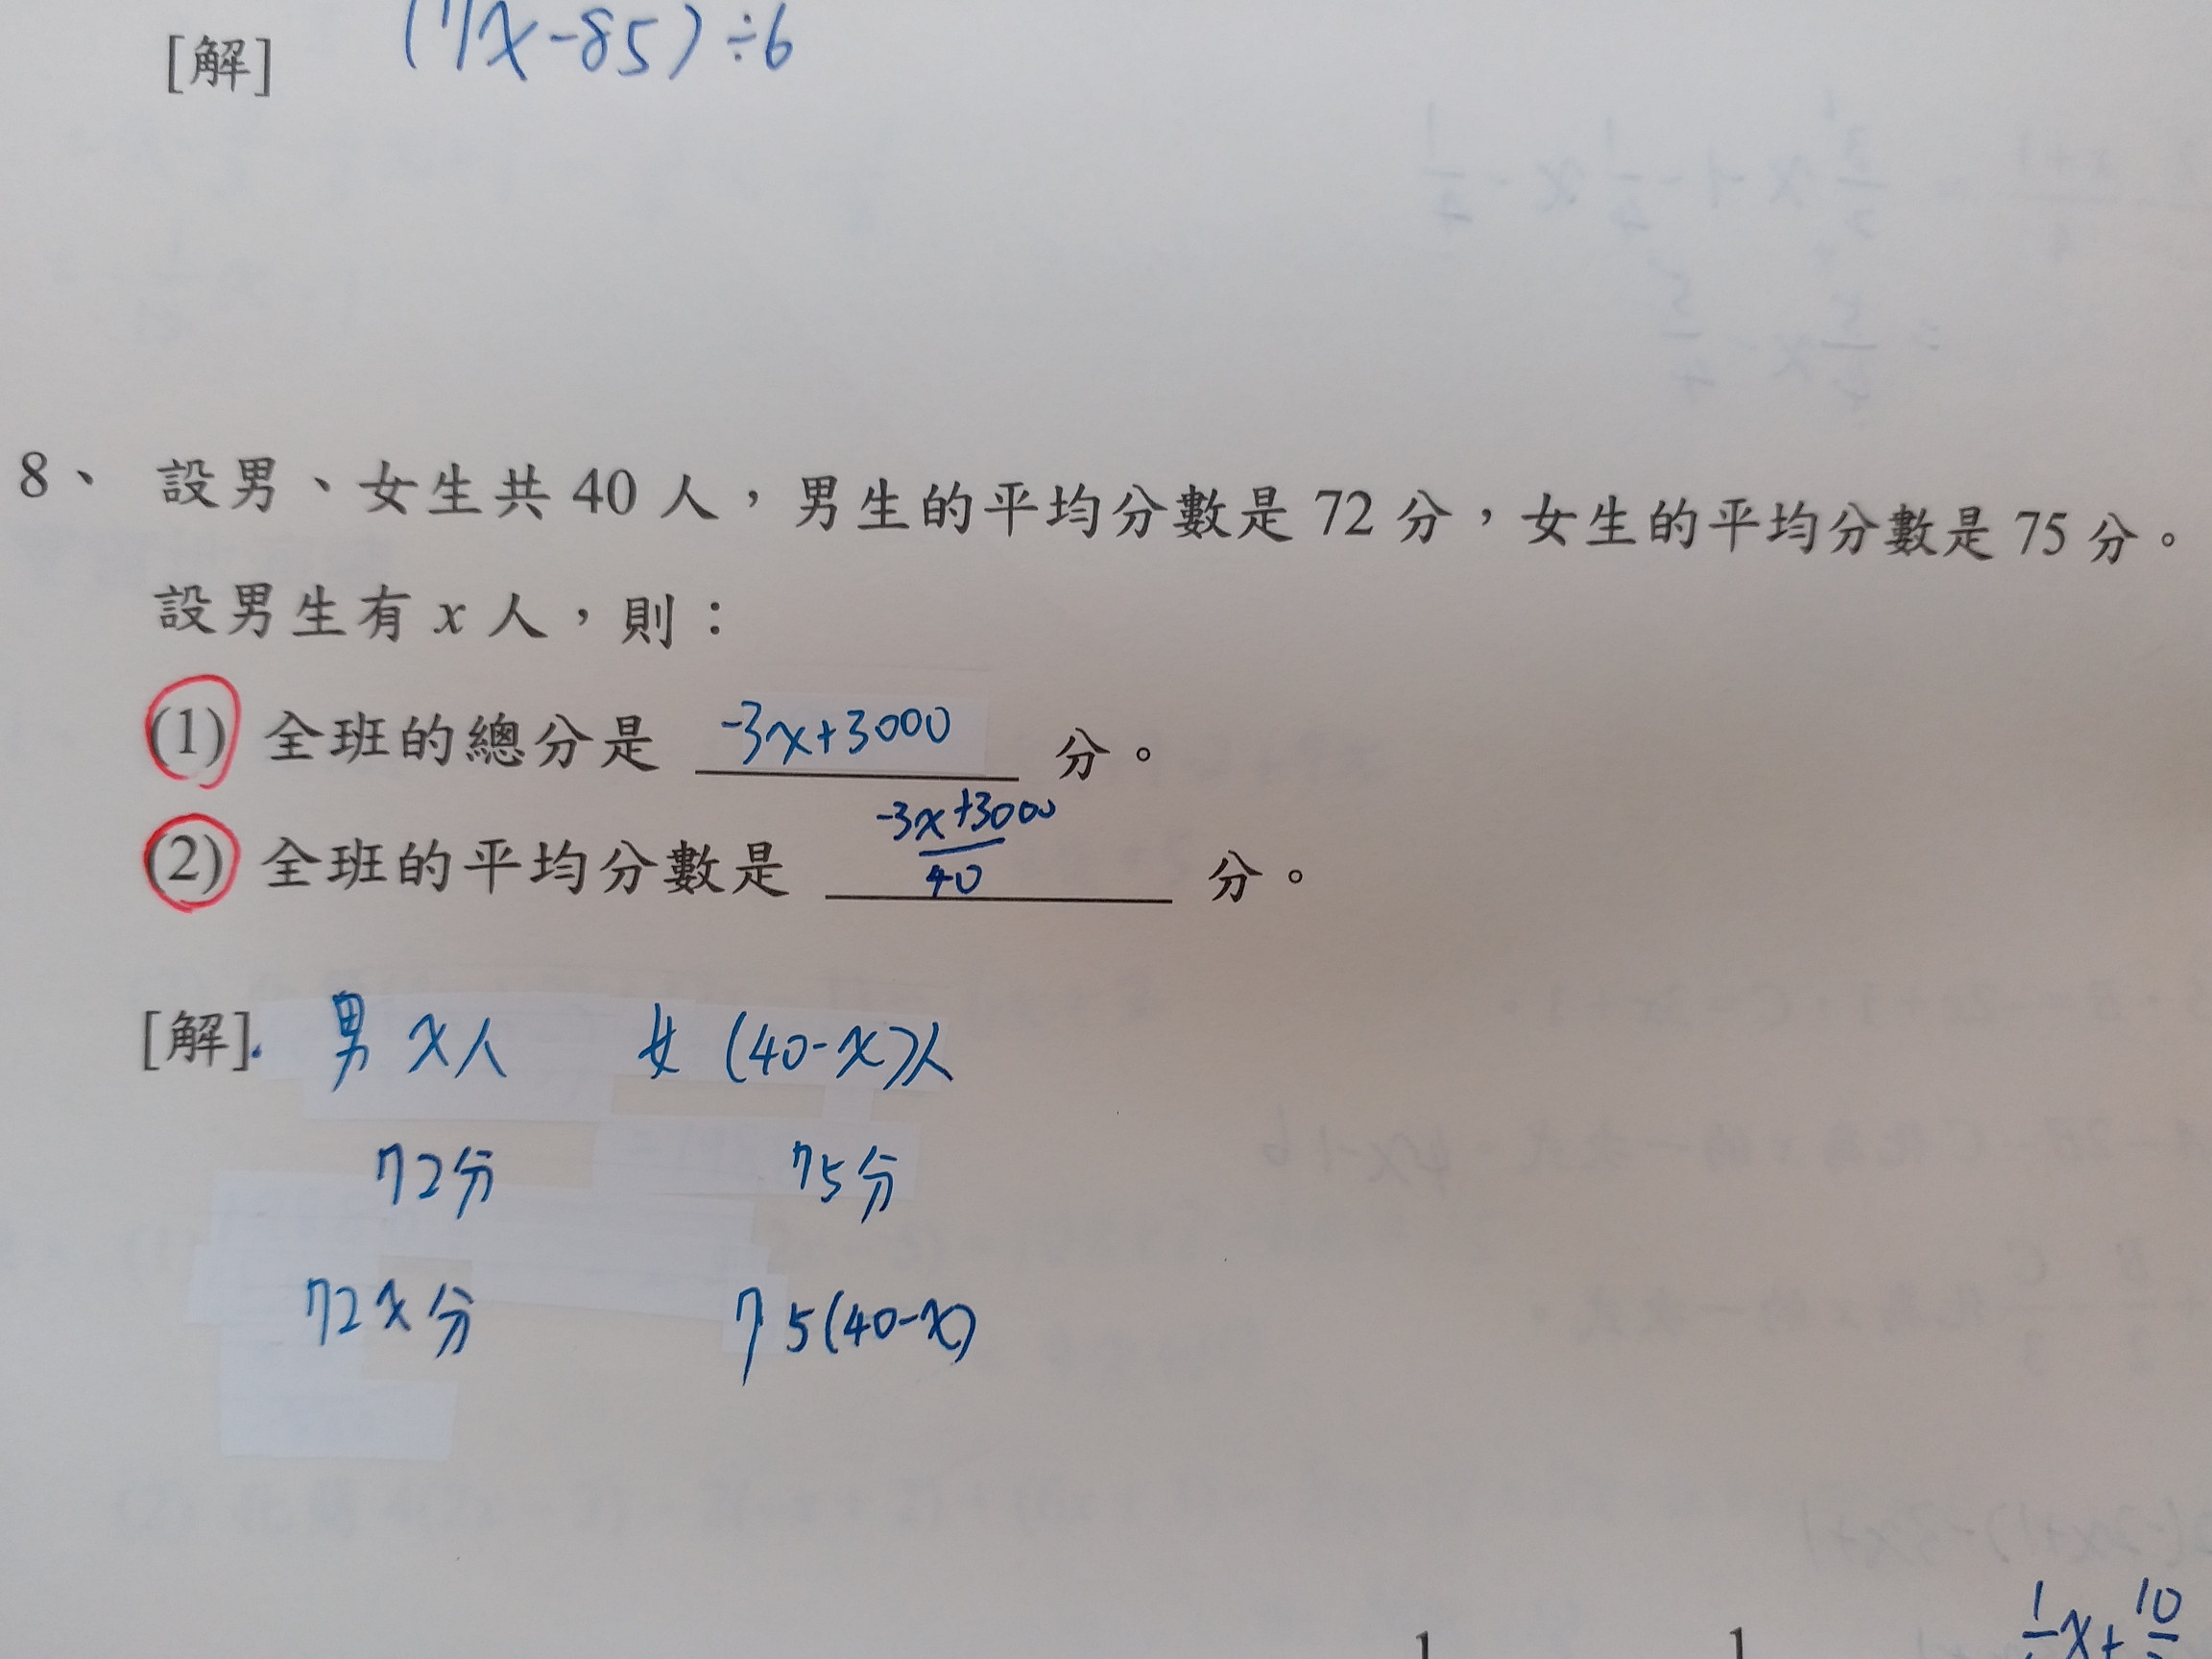 [解] (7x-85)÷6
8、 設男、女生共 40 人，男生的平均分數是 72 分，女生的平均分數是 75 分。
設男生有 x 人，則：
(1) 全班的總分是 -3x+3000 分。
(2) 全班的平均分數是 \frac{-3x+3000}{40} 分。
[解]. 男 x人 女 (40-x)人
72分 75分
72x分 75(40-x)